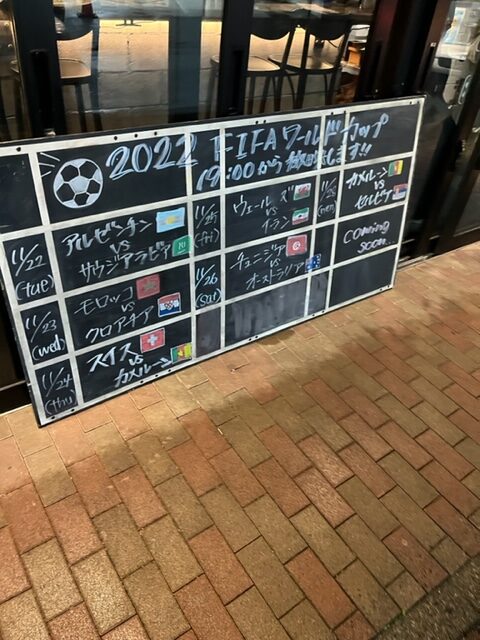 2022 FIFA ワールドカップ
19:00から放映します!!
11/22
(tue)
アルゼンチン
vs
サウジアラビア
11/23
(wed)
モロッコ
vs
クロアチア
11/24
(thu)
スイス
vs
カメルーン
11/25
(fri)
ウェールズ
vs
イラン
11/26
(sat)
チュニジア
vs
オーストラリア
カメルーン
vs
セルビア
coming
soon..